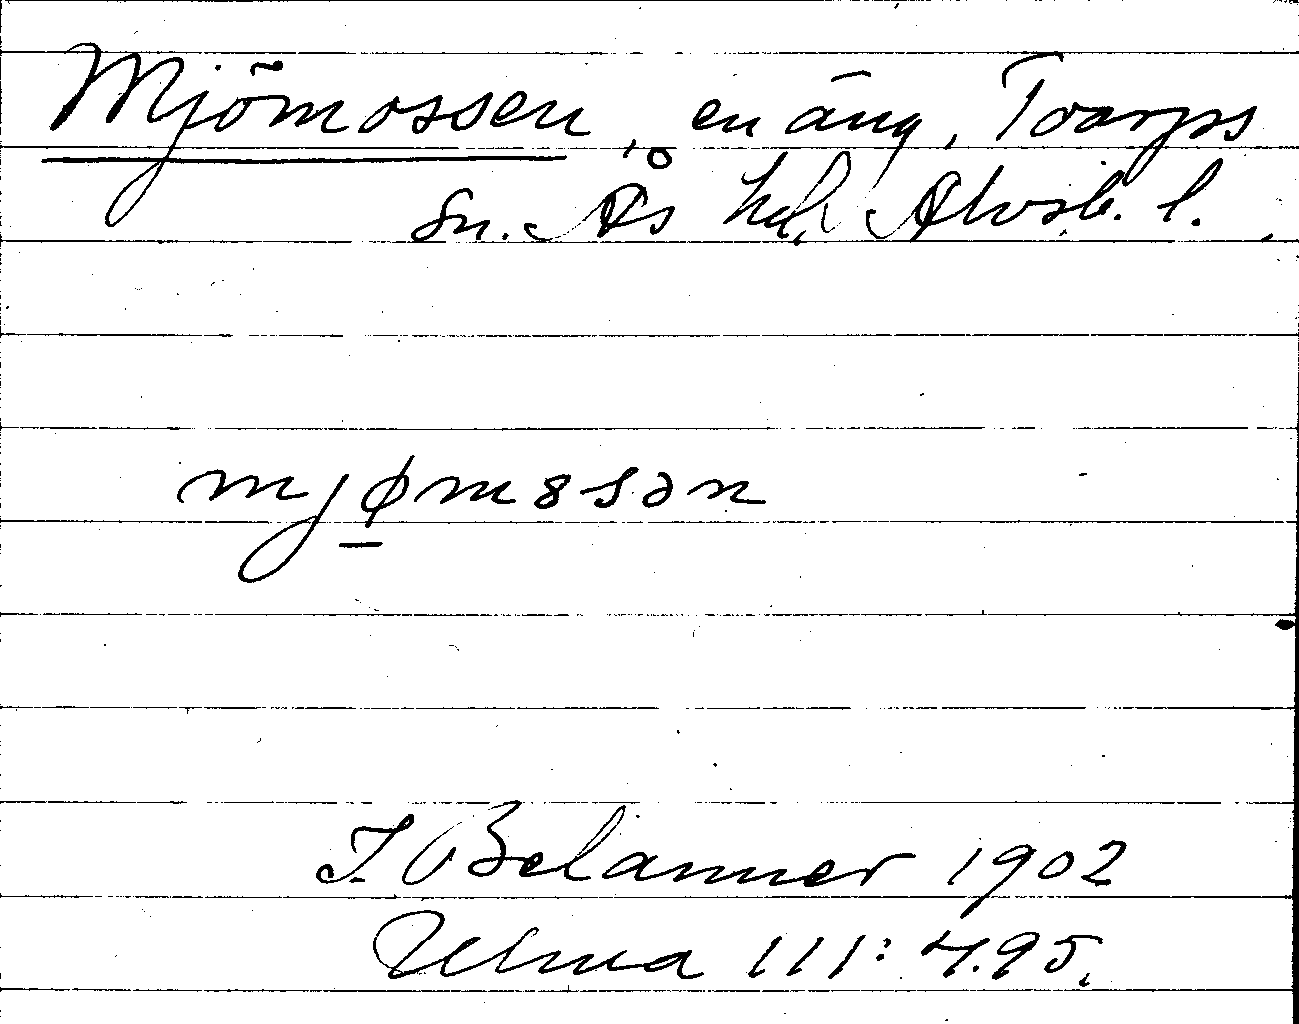 Mjömossen, en äng, Toarps
sn. Ås hd. Älvsb. l.
mjømosən
J. Belanner 1902
Ulma 111:4.95.